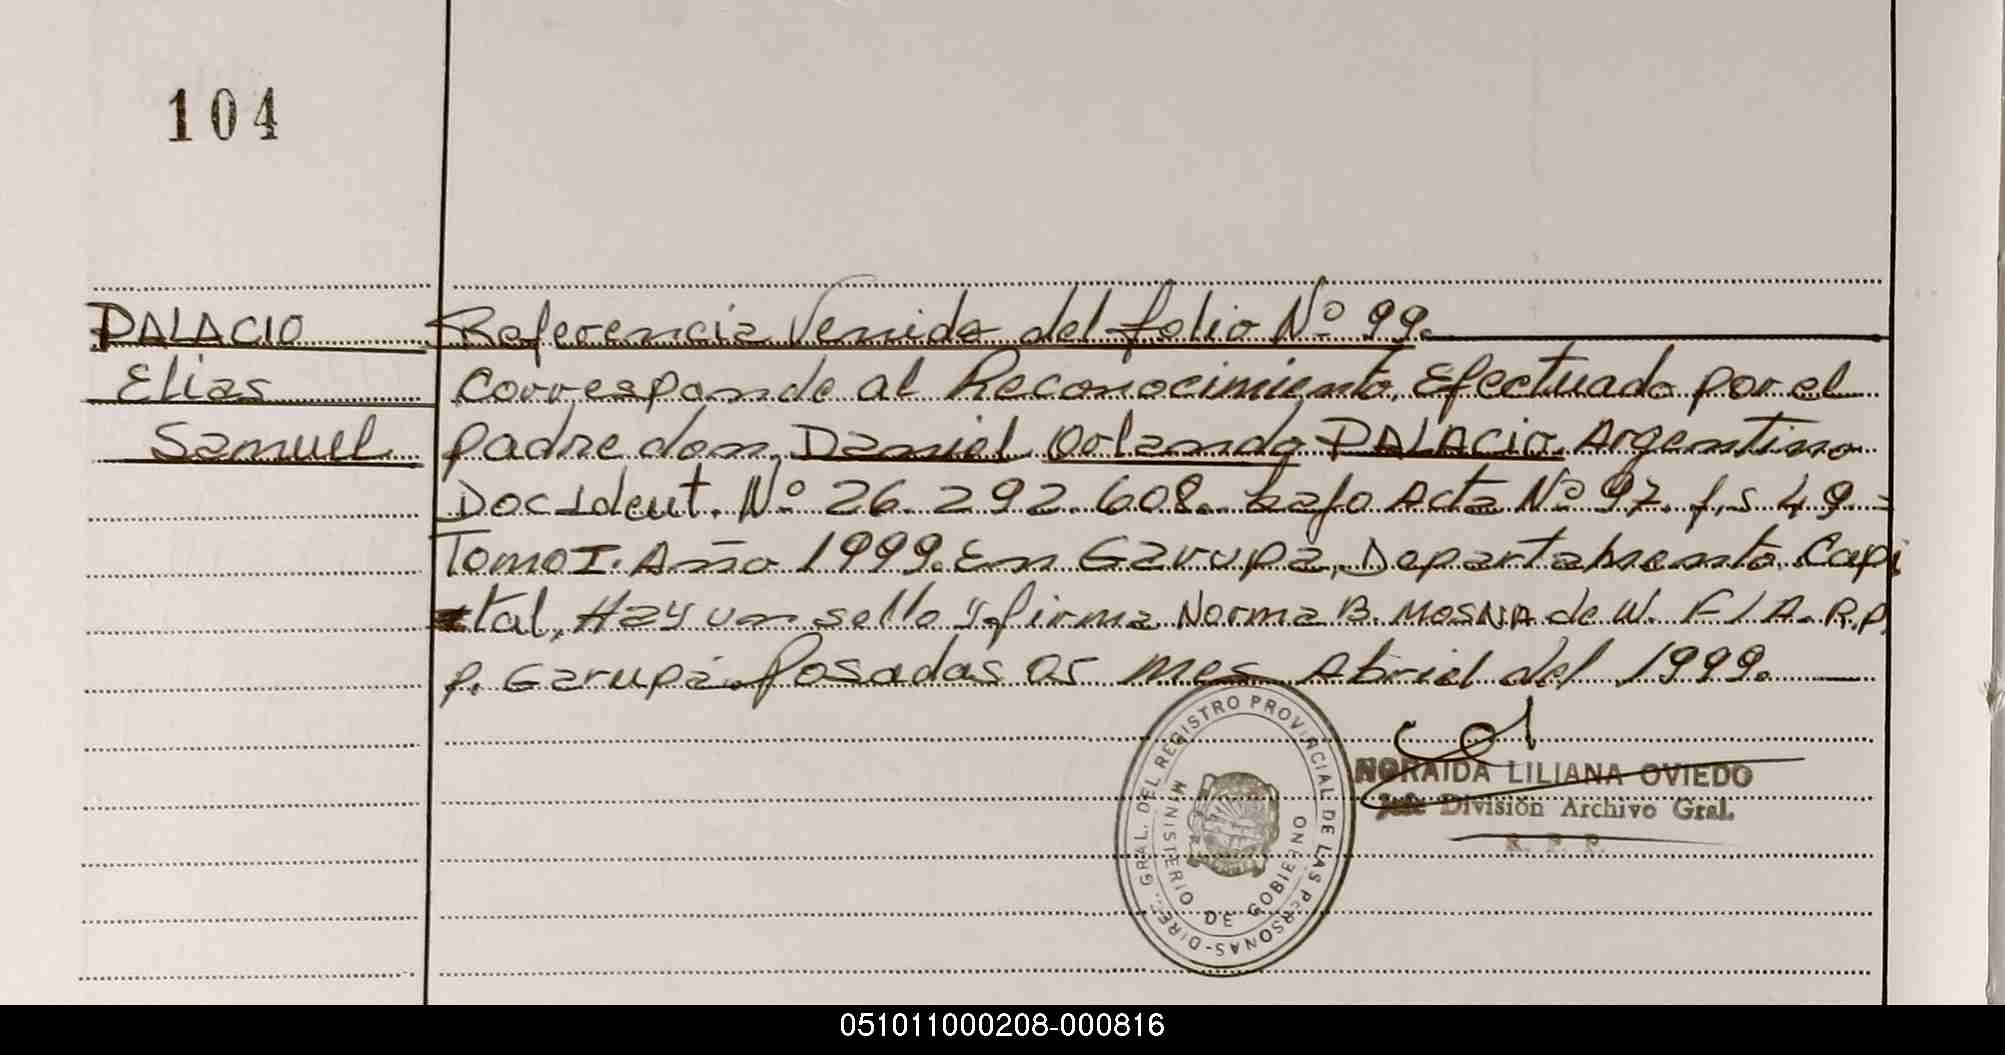 104
PALACIO
Elias
Samuel
Referencia Venida del folio Nº 99.
Corresponde al Reconocimiento, Efectuado por el
padre don, Daniel Orlando PALACIO. Argentino
Doc Ident. Nº 26.292.608. bajo Acta Nº 97. f,s 49.=
Tomo I. Año 1999. En Garupá, Departamento Capi
tal, Hay un sello y firma Norma B. MOSNA de W. F/A. R.P.
P. Garupá. Posadas 05 mes Abriel del 1999.
DIREC. GRAL. DEL REGISTRO PROVINCIAL DE LAS PERSONAS-
MINISTERIO DE GOBIERNO
NORAIDA LILIANA OVIEDO
Jefe División Archivo Gral.
R. P. P.
051011000208-000816